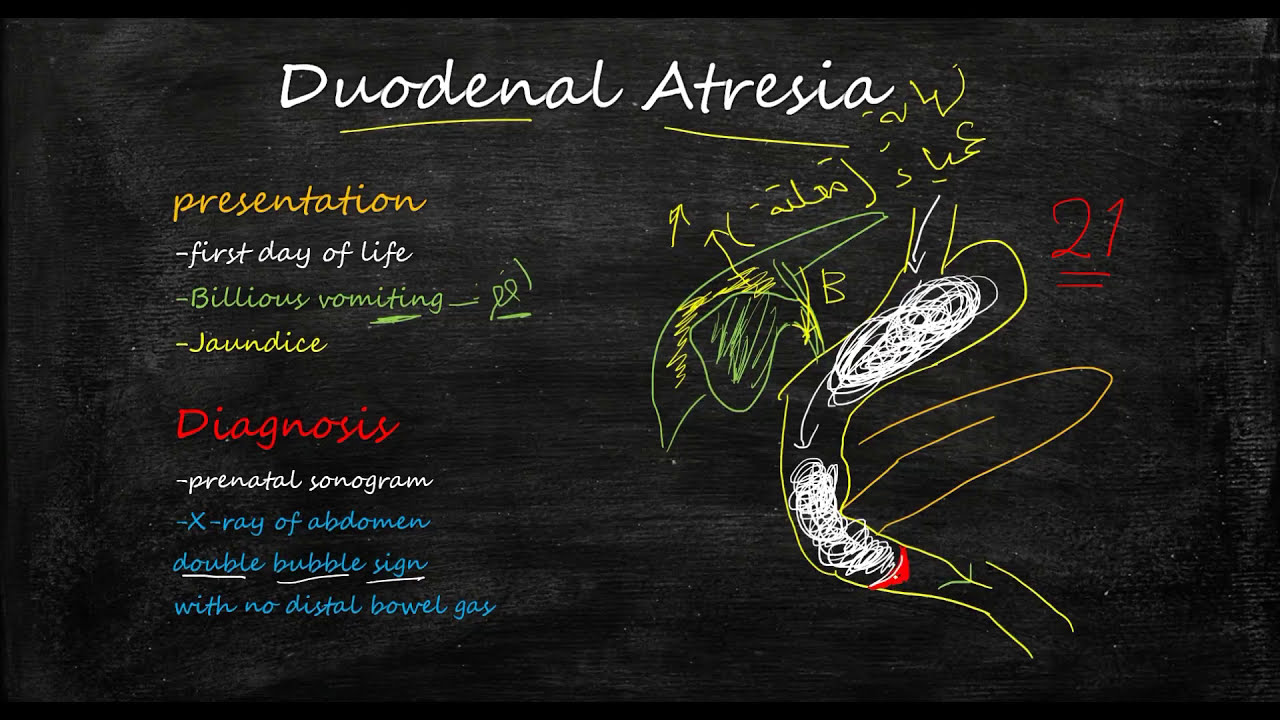 Duodenal Atresia
presentation
-first day of life
-Billious vomiting
-Jaundice
Diagnosis
-prenatal sonogram
-X-ray of abdomen
double bubble sign
with no distal bowel gas
B
21